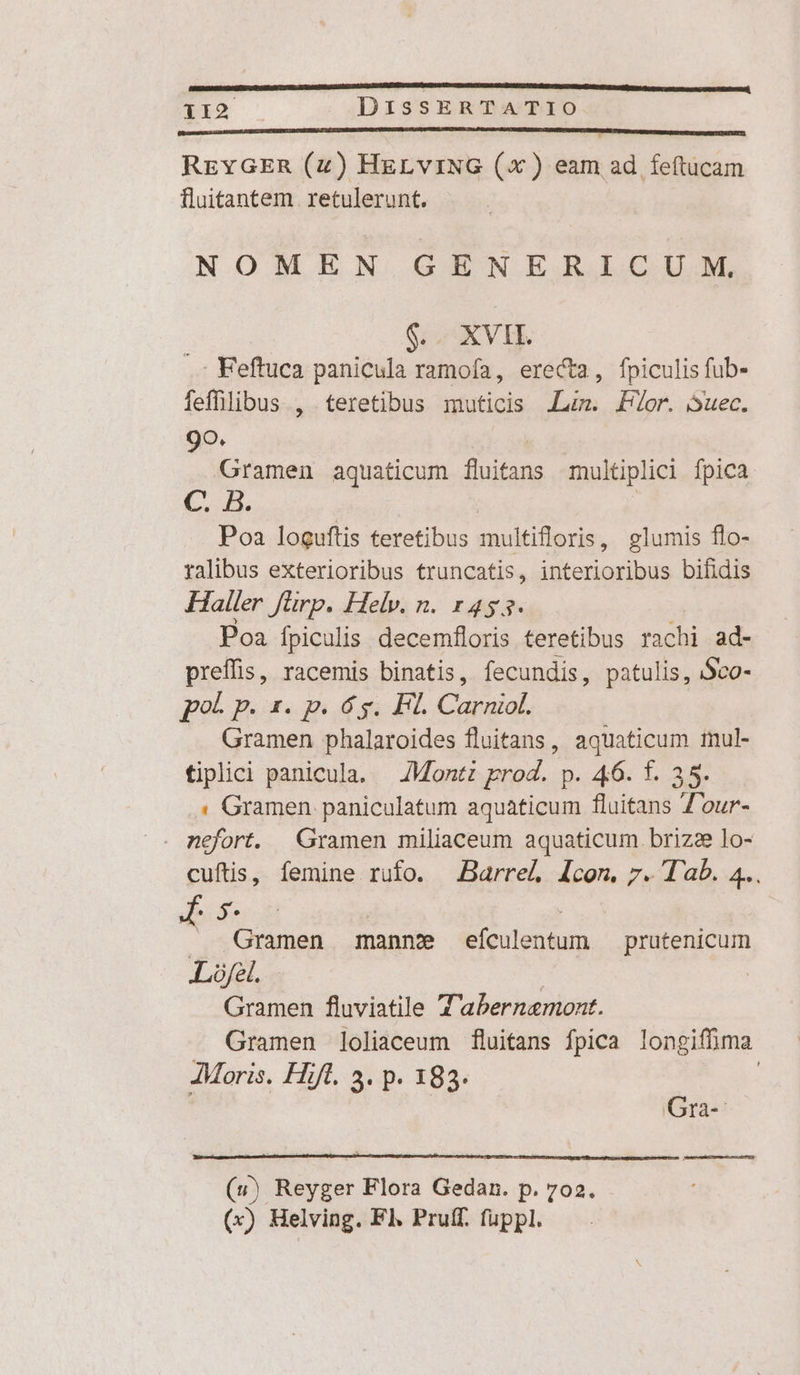 112 DISSERTATIO
REYGER (u) HELVING (x) eam ad feſtucam
fluitantem retulerunt.
NOMEN GENERICUM.
§. XVII.
Feſtuca panicula ramoſa, erecta, ſpiculis ſub-
ſeſſilibus, teretibus muticis Lin. Flor. Suec.
90.
Gramen aquaticum fluitans multiplici ſpica
C. B.
Poa loguſtis teretibus multifloris, glumis flo-
ralibus exterioribus truncatis, interioribus bifidis
Haller ſtirp. Helv. n. 1453.
Poa ſpiculis decemfloris teretibus rachi ad-
preſſis, racemis binatis, ſecundis, patulis, Sco-
pol. p. 1. p. 65. Fl. Carniol.
Gramen phalaroides fluitans, aquaticum mul-
tiplici panicula. Monti prod. p. 46. f. 35.
Gramen paniculatum aquaticum fluitans Tour-
nefort. Gramen miliaceum aquaticum brizæ lo-
cuſtis, ſemine rufo. Barrel, Icon, 7. Tab. 4.
f. 5.
Gramen mannæ eſculentum prutenicum
Löſel.
Gramen fluviatile Tabernæmont.
Gramen loliaceum fluitans ſpica longiſſima
Moris. Hiſt. 3. p. 183.
Gra-
(u) Reyger Flora Gedan. p. 702.
(x) Helving. Fl. Pruſſ. ſuppl.